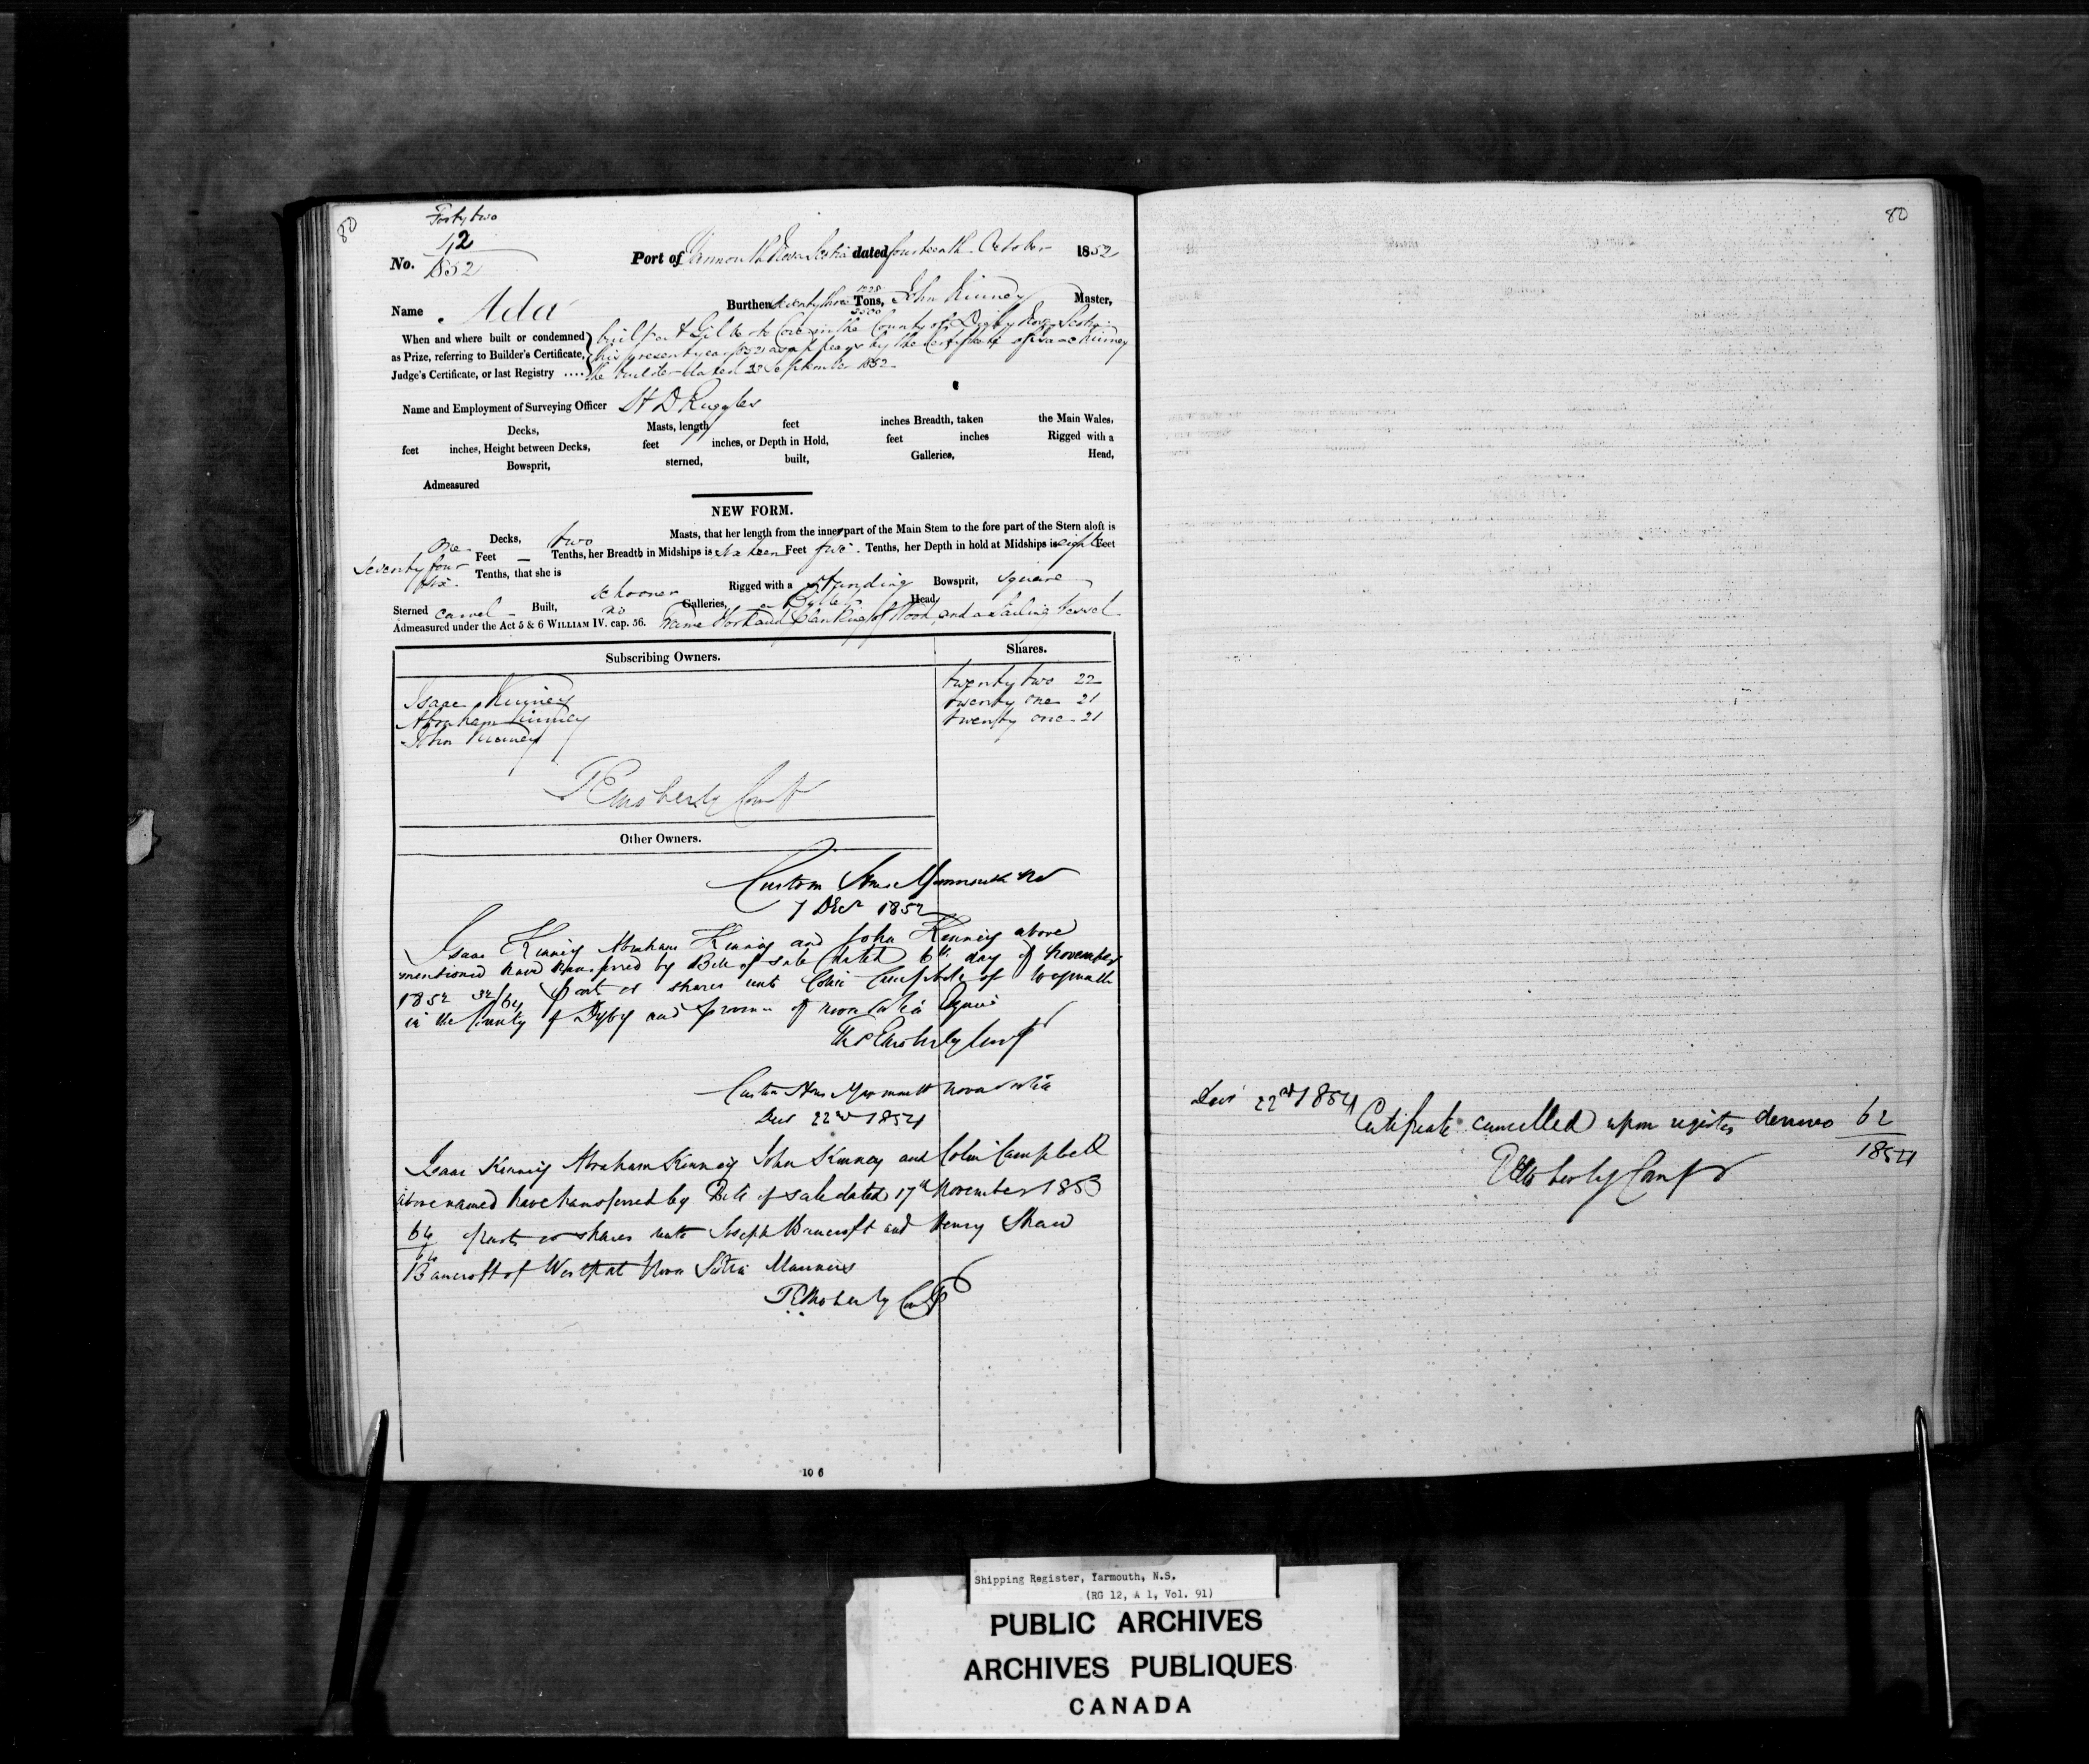 80
Forty two
No. 42
1852
Port of Yarmouth Nova Scotia dated fourteenth October 1852
Name Ada Burthen seventy three Tons, John Kinney Master,
3500
When and where built or condemned
as Prize, referring to Builder's Certificate,
Judge's Certificate, or last Registry ....
built at Gilberts Cove in the County of Digby Nova Scotia
this present year 1852 as appears by the Certificate of Isaac Kinney
the builder dated 23 September 1852
Name and Employment of Surveying Officer St D Ruggles
Decks, Masts, length feet inches Breadth, taken the Main Wales,
feet inches, Height between Decks, feet inches, or Depth in Hold, feet inches Rigged with a
Bowsprit, sterned, built, Galleries, Head,
Admeasured
NEW FORM.
one Decks, two Masts, that her length from the inner part of the Main Stem to the fore part of the Stern aloft is
seventy four Feet — Tenths, her Breadth in Midships is sixteen Feet five Tenths, her Depth in hold at Midships is eight Feet
six Tenths, that she is schooner Rigged with a standing Bowsprit, square
Sterned carvel Built, no Galleries, Head
Admeasured under the Act 5 & 6 WILLIAM IV. cap. 56. Frame Work and Planking of Wood, and a Sailing Vessel
Subscribing Owners. Shares.
Isaac Kinney twenty two 22
Abraham Kinney twenty one 21
John Kinney twenty one 21
T E Moberly Compt
Other Owners.
Custom House Yarmouth NS
7 Decr 1852
Isaac Kinney Abraham Kinney and John Kinney above
mentioned have transferred by Bill of sale dated 6th day of November
1852 32/64 parts or shares unto Colin Campbell of Weymouth
in the County of Digby and Province of Nova Scotia Esquire
T E Moberly Compt
Custom House Yarmouth Nova Scotia
Decr 22nd 1854
Isaac Kinney Abraham Kinney John Kinney and Colin Campbell
above named have transferred by Bill of sale dated 17th November 1853
64
64 parts or shares unto Joseph Bancroft and Henry Shaw
Bancroft of Westport Nova Scotia Mariners
T E Moberly Compt
10 6
80
Decr 22nd 1854
Certificate cancelled upon register denovo 62
1854
T E Moberly Compt
Shipping Register, Yarmouth, N.S.
(RG 12, A 1, Vol. 91)
PUBLIC ARCHIVES
ARCHIVES PUBLIQUES
CANADA